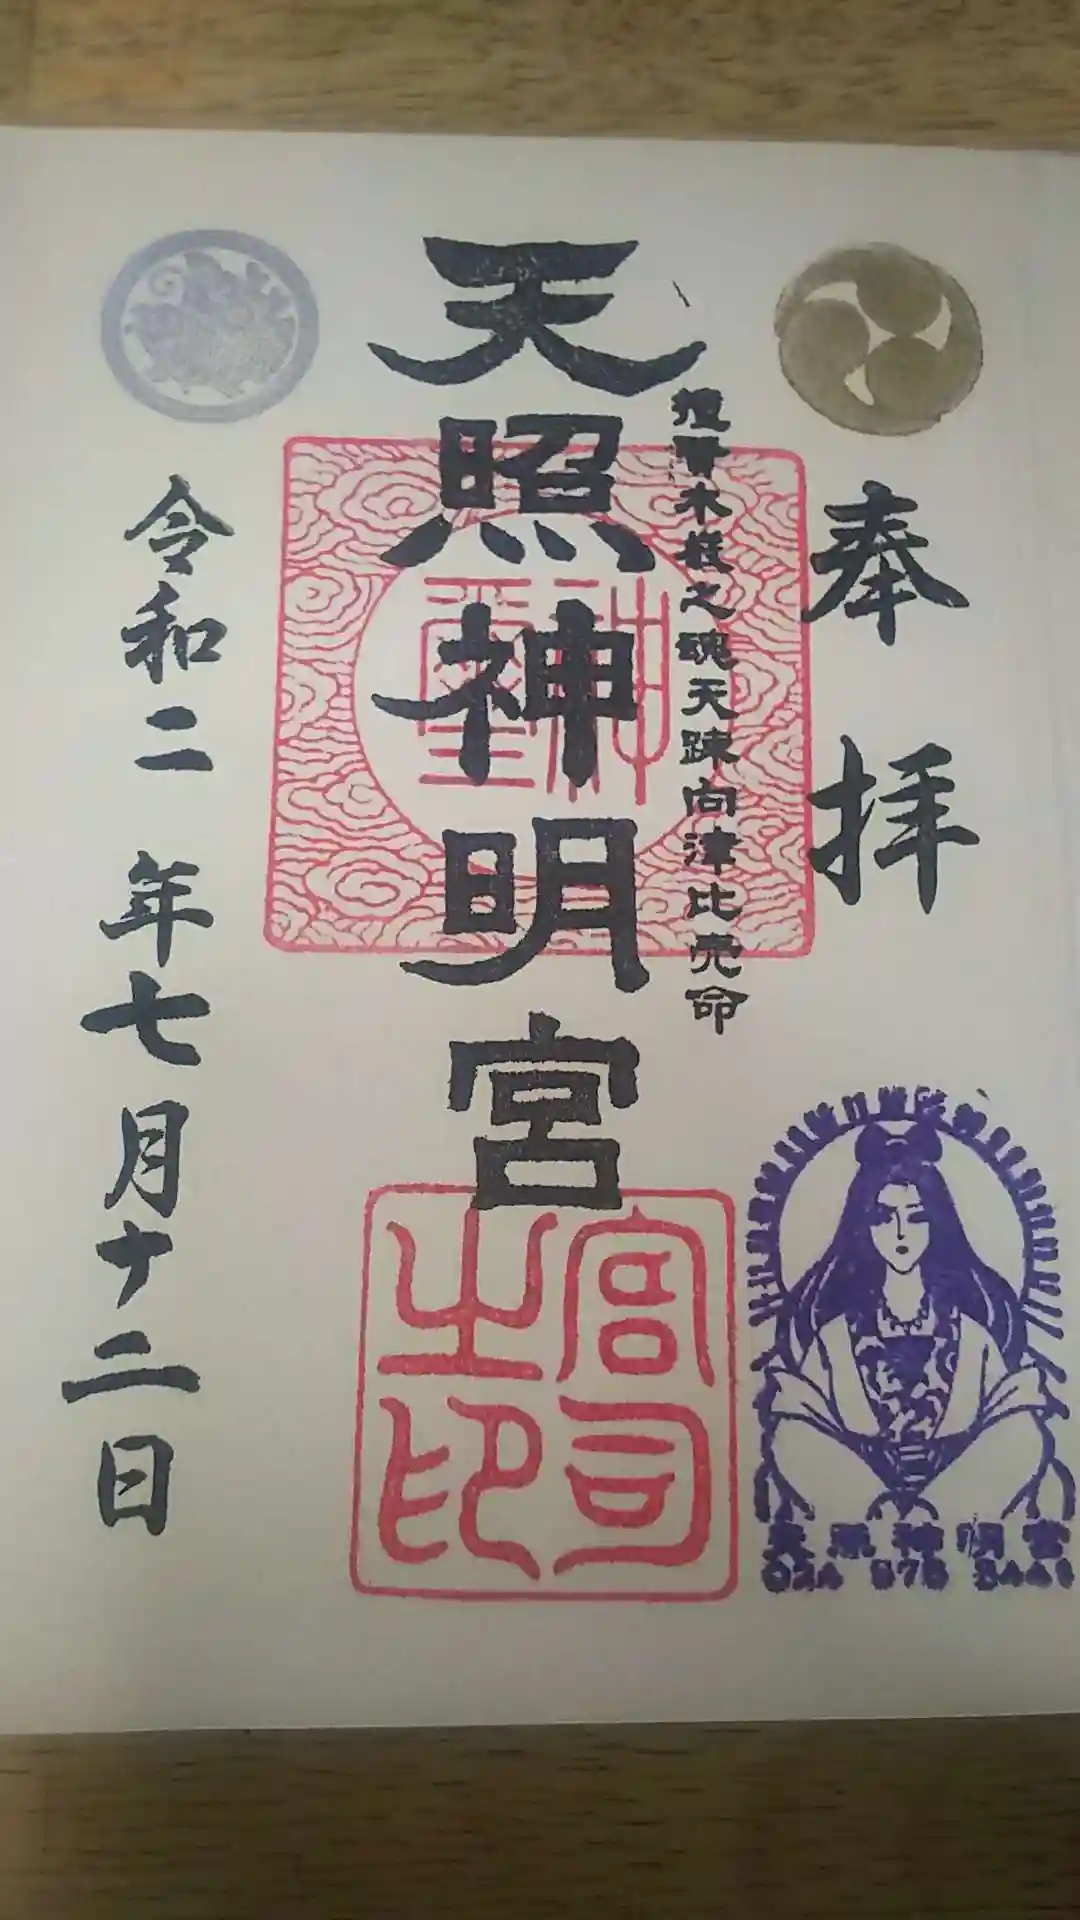 奉拝
木柱之魂天疎向津比売命
天照神明宮
神璽
宮司之印
令和二年七月十二日
天照神明宮